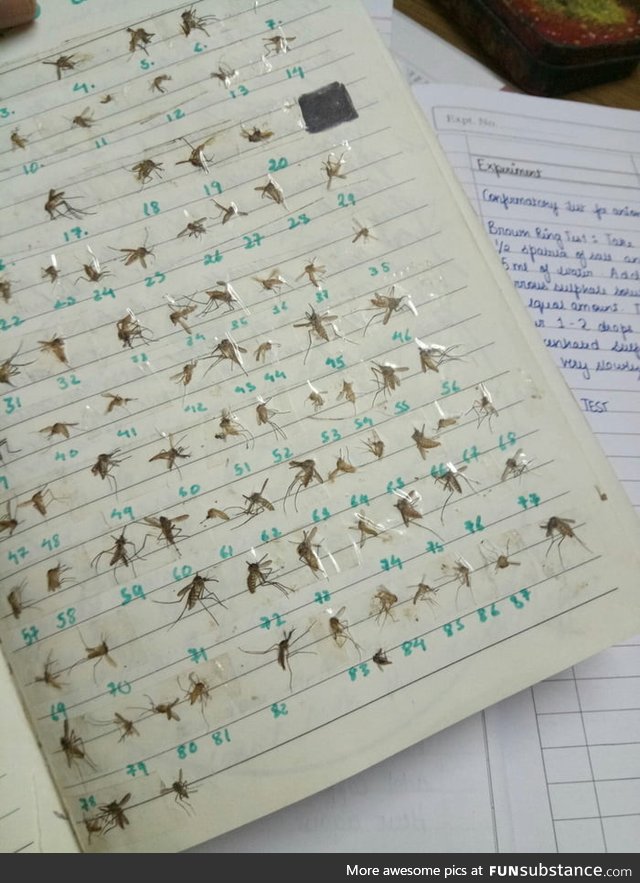 7.
3. 4. 5. 6.
10. 11 12 13 14
17. 18 19 20
22 23 24 25 26 27 28 29
31 32 33 34 35 36 37 35
40 41 42 43 44 45 46
47 48 49 50 51 52 53 54 55 56
57 58 59 60 61 62 63 64 65 66 67 68
69 70 71 72 73 74 75 76 77
78 79 80 81 82 83 84 85 86 87
Expt. No.
Experiment
Confirmatory test for
Brown Ring Test: Take
1/2 spatula of salt
5 ml of water. Add
sulphate
equal amount.
1-2 drops
very slowly
TEST
More awesome pics at FUNsubstance.com